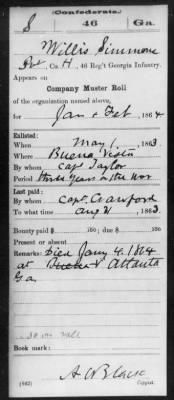 Confederate.
S 46 Ga.
Willis Simmons
Pvt, Co. H, 46 Reg't Georgia Infantry.
Appears on
Company Muster Roll
of the organization named above,
for Jan & Feb, 1864
Enlisted:
When May 1, 1863
Where Buena Vista
By whom Capt Taylor
Period three years or the war
Last paid:
By whom Capt. Crawford
To what time Aug 31, 1863.
Bounty paid $ 100; due $ 100
Present or absent
Remarks: Died Jany 4. 1864
at Atlanta
Ga
Book mark:
A. W. Black
(642) Copyist.